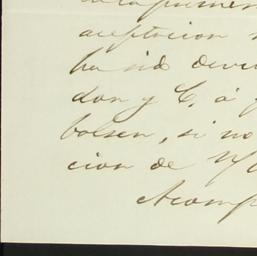 aceptacion
ha sido devu
don y C. á
bolsen, si no
cion de
Acomp